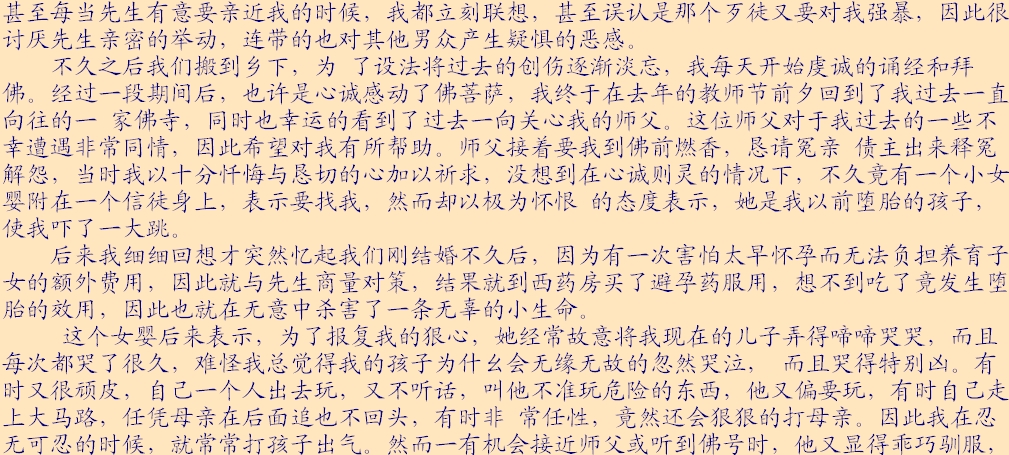 甚至每当先生有意要亲近我的时候，我都立刻联想，甚至误认是那个歹徒又要对我强暴，因此很
讨厌先生亲密的举动，连带的也对其他男众产生疑惧的恶感。
不久之后我们搬到乡下，为 了设法将过去的创伤逐渐淡忘，我每天开始虔诚的诵经和拜
佛。经过一段期间后，也许是心诚感动了佛菩萨，我终于在去年的教师节前夕回到了我过去一直
向往的一 家佛寺，同时也幸运的看到了过去一向关心我的师父。这位师父对于我过去的一些不
幸遭遇非常同情，因此希望对我有所帮助。师父接着要我到佛前燃香，恳请冤亲 债主出来释冤
解怨，当时我以十分忏悔与恳切的心加以祈求，没想到在心诚则灵的情况下，不久竟有一个小女
婴附在一个信徒身上，表示要找我，然而却以极为怀恨 的态度表示，她是我以前堕胎的孩子，
使我吓了一大跳。
后来我细细回想才突然忆起我们刚结婚不久后，因为有一次害怕太早怀孕而无法负担养育子
女的额外费用，因此就与先生商量对策，结果就到西药房买了避孕药服用，想不到吃了竟发生堕
胎的效用，因此也就在无意中杀害了一条无辜的小生命。
这个女婴后来表示，为了报复我的狠心，她经常故意将我现在的儿子弄得啼啼哭哭，而且
每次都哭了很久，难怪我总觉得我的孩子为什么会无缘无故的忽然哭泣， 而且哭得特别凶。有
时又很顽皮，自己一个人出去玩，又不听话，叫他不准玩危险的东西，他又偏要玩，有时自己走
上大马路，任凭母亲在后面追也不回头，有时非 常任性，竟然还会狠狠的打母亲。因此我在忍
无可忍的时候，就常常打孩子出气。然而一有机会接近师父或听到佛号时，他又显得乖巧驯服，